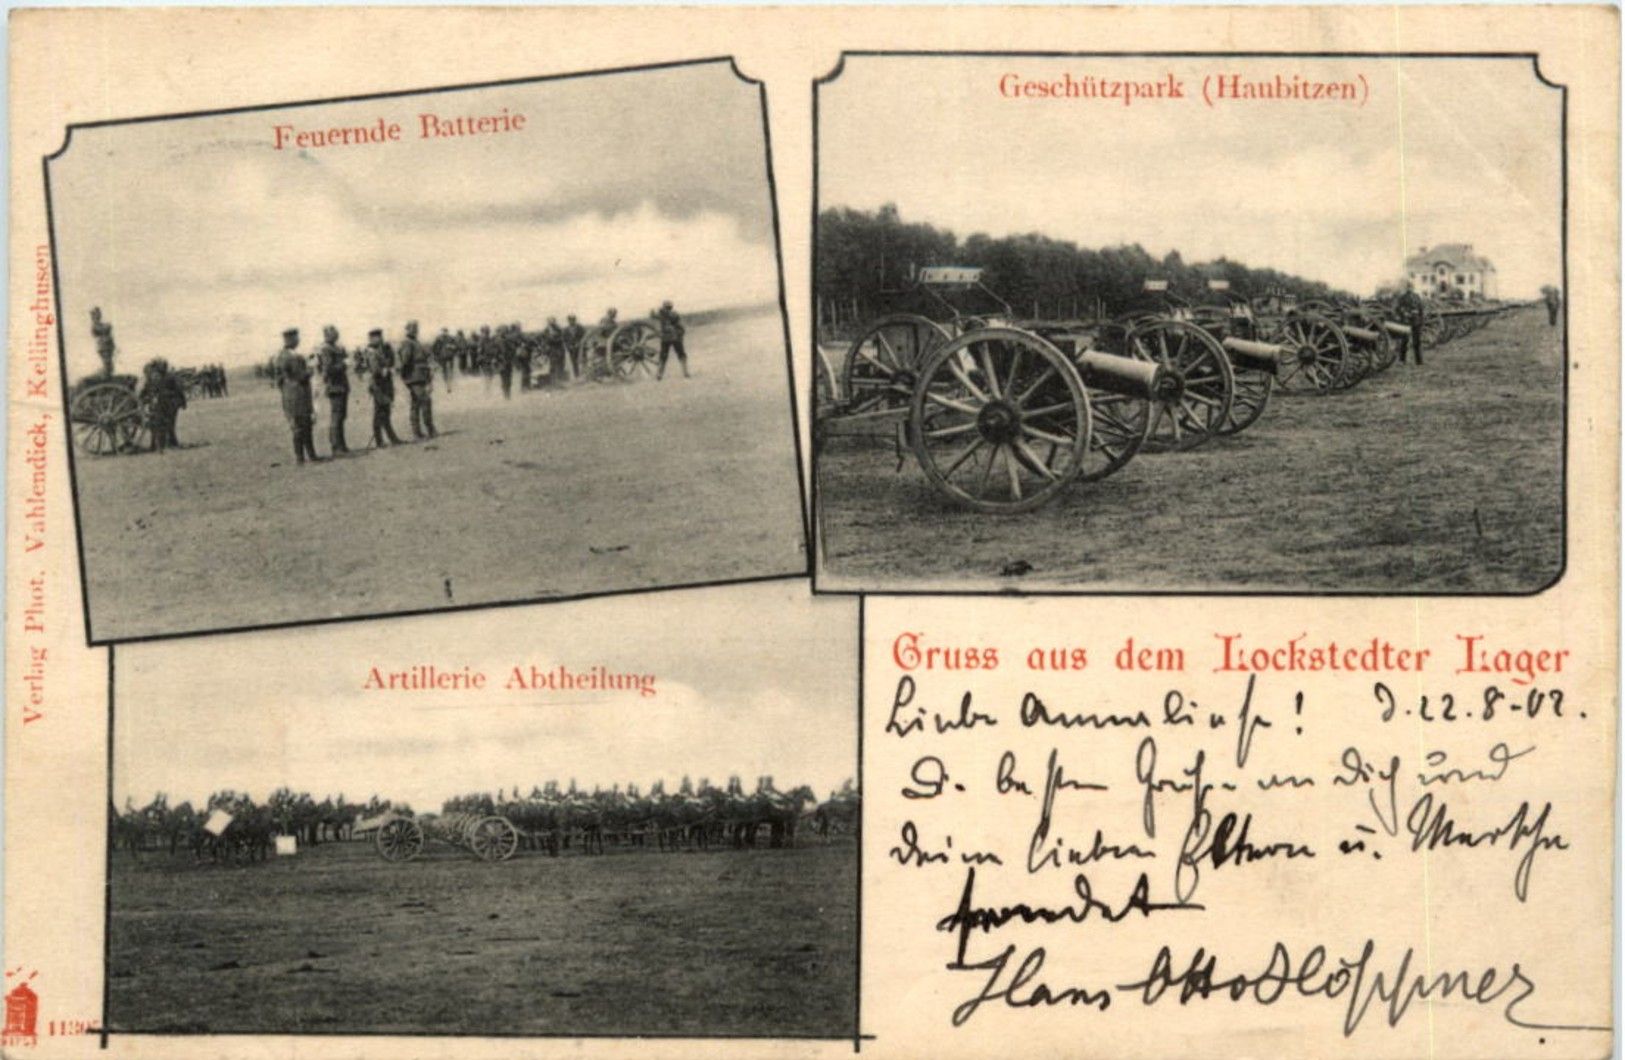 Feuernde Batterie
Geschützpark (Haubitzen)
Artillerie Abtheilung
Verlag Phot. Vahlendick, Kellinghusen
Gruss aus dem Lockstedter Lager
Liebe Annaliese! d. 22.8-02.
D. besten Grüße an dich und
deine lieben Eltern u.
sendet
Hans Otto